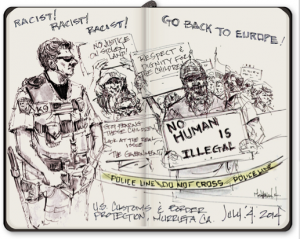 RACIST!
RACIST!
RACIST!
GO BACK TO EUROPE!
NO JUSTICE
ON STOLEN
LAND!
RESPECT &
DIGNITY FOR
THE CHILDREN
K9
THESE CHILDREN
LOOK AT THE REAL
ISSUE
THE GOVERNMENT
NO
HUMAN IS
ILLEGAL
POLICE LINE DO NOT CROSS POLICE LINE
U.S. CUSTOMS & BORDER
PROTECTION, MURRIETA CA
JULY 4 2014